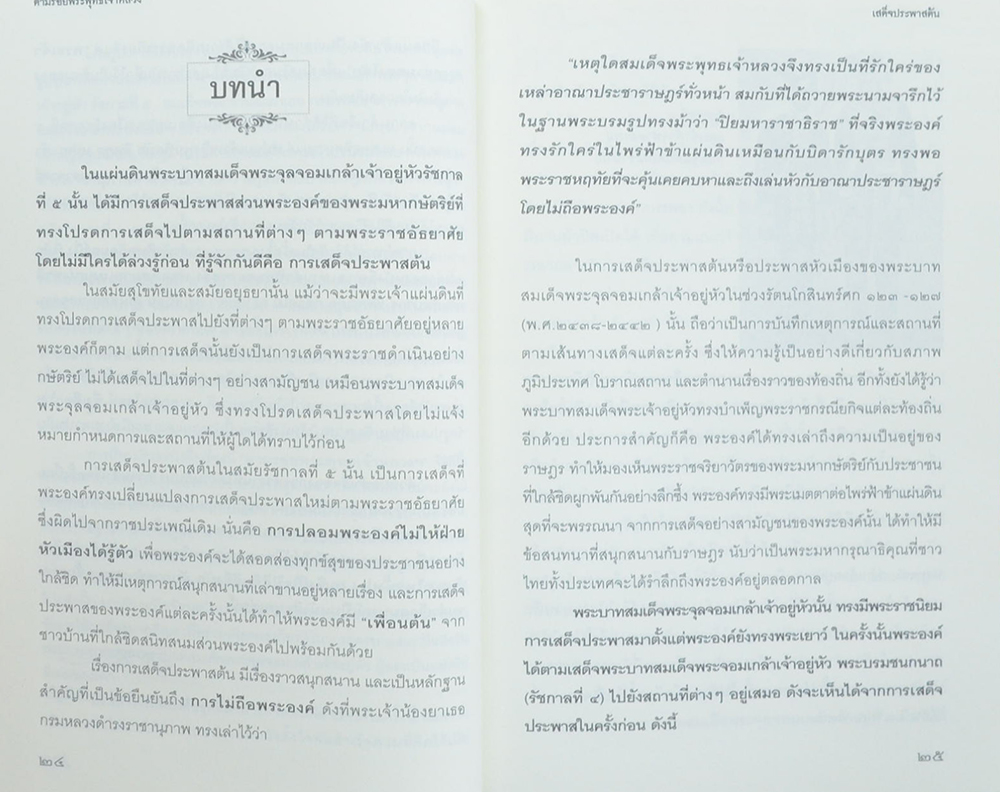 ตามรอยพระพุทธเจ้าหลวง
บทนำ
ในแผ่นดินพระบาทสมเด็จพระจุลจอมเกล้าเจ้าอยู่หัวรัชกาล
ที่ ๕ นั้น ได้มีการเสด็จประพาสส่วนพระองค์ของพระมหากษัตริย์ที่
ทรงโปรดการเสด็จไปตามสถานที่ต่างๆ ตามพระราชอัธยาศัย
โดยไม่มีใครได้ล่วงรู้ก่อน ที่รู้จักกันดีคือ การเสด็จประพาสต้น
ในสมัยสุโขทัยและสมัยอยุธยานั้น แม้ว่าจะมีพระเจ้าแผ่นดินที่
ทรงโปรดการเสด็จประพาสไปยังที่ต่างๆ ตามพระราชอัธยาศัยอยู่หลาย
พระองค์ก็ตาม แต่การเสด็จนั้นยังเป็นการเสด็จพระราชดำเนินอย่าง
กษัตริย์ ไม่ได้เสด็จไปในที่ต่างๆ อย่างสามัญชน เหมือนพระบาทสมเด็จ
พระจุลจอมเกล้าเจ้าอยู่หัว ซึ่งทรงโปรดเสด็จประพาสโดยไม่แจ้ง
หมายกำหนดการและสถานที่ให้ผู้ใดได้ทราบไว้ก่อน
การเสด็จประพาสต้นในสมัยรัชกาลที่ ๕ นั้น เป็นการเสด็จที่
พระองค์ทรงเปลี่ยนแปลงการเสด็จประพาสใหม่ตามพระราชอัธยาศัย
ซึ่งผิดไปจากราชประเพณีเดิม นั่นคือ การปลอมพระองค์ไม่ให้ฝ่าย
หัวเมืองได้รู้ตัว เพื่อพระองค์จะได้สอดส่องทุกข์สุขของประชาชนอย่าง
ใกล้ชิด ทำให้มีเหตุการณ์สนุกสนานที่เล่าขานอยู่หลายเรื่อง และการเสด็จ
ประพาสของพระองค์แต่ละครั้งนั้นได้ทำให้พระองค์มี “เพื่อนต้น” จาก
ชาวบ้านที่ใกล้ชิดสนิทสนมส่วนพระองค์ไปพร้อมกันด้วย
เรื่องการเสด็จประพาสต้น มีเรื่องราวสนุกสนาน และเป็นหลักฐาน
สำคัญที่เป็นข้อยืนยันถึง การไม่ถือพระองค์ ดังที่พระเจ้าน้องยาเธอ
กรมหลวงดำรงราชานุภาพ ทรงเล่าไว้ว่า
๒๔
เสด็จประพาสต้น
“เหตุใดสมเด็จพระพุทธเจ้าหลวงจึงทรงเป็นที่รักใคร่ของ
เหล่าอาณาประชาราษฎร์ทั่วหน้า สมกับที่ได้ถวายพระนามจารึกไว้
ในฐานพระบรมรูปทรงม้าว่า “ปิยมหาราชาธิราช” ที่จริงพระองค์
ทรงรักใคร่ในไพร่ฟ้าข้าแผ่นดินเหมือนกับบิดารักบุตร ทรงพอ
พระราชหฤทัยที่จะคุ้นเคยคบหาและถึงเล่นหัวกับอาณาประชาราษฎร์
โดยไม่ถือพระองค์”
ในการเสด็จประพาสต้นหรือประพาสหัวเมืองของพระบาท
สมเด็จพระจุลจอมเกล้าเจ้าอยู่หัวในช่วงรัตนโกสินทร์ศก ๑๒๓ -๑๒๗
(พ.ศ.๒๔๓๘-๒๔๔๒ ) นั้น ถือว่าเป็นการบันทึกเหตุการณ์และสถานที่
ตามเส้นทางเสด็จแต่ละครั้ง ซึ่งให้ความรู้เป็นอย่างดีเกี่ยวกับสภาพ
ภูมิประเทศ โบราณสถาน และตำนานเรื่องราวของท้องถิ่น อีกทั้งยังได้รู้ว่า
พระบาทสมเด็จพระเจ้าอยู่หัวทรงบำเพ็ญพระราชกรณียกิจแต่ละท้องถิ่น
อีกด้วย ประการสำคัญก็คือ พระองค์ได้ทรงเล่าถึงความเป็นอยู่ของ
ราษฎร ทำให้มองเห็นพระราชจริยาวัตรของพระมหากษัตริย์กับประชาชน
ที่ใกล้ชิดผูกพันกันอย่างลึกซึ้ง พระองค์ทรงมีพระเมตตาต่อไพร่ฟ้าข้าแผ่นดิน
สุดที่จะพรรณนา จากการเสด็จอย่างสามัญชนของพระองค์นั้น ได้ทำให้มี
ข้อสนทนาที่สนุกสนานกับราษฎร นับว่าเป็นพระมหากรุณาธิคุณที่ชาว
ไทยทั้งประเทศจะได้รำลึกถึงพระองค์อยู่ตลอดกาล
พระบาทสมเด็จพระจุลจอมเกล้าเจ้าอยู่หัวนั้น ทรงมีพระราชนิยม
การเสด็จประพาสมาตั้งแต่พระองค์ยังทรงพระเยาว์ ในครั้งนั้นพระองค์
ได้ตามเสด็จพระบาทสมเด็จพระจอมเกล้าเจ้าอยู่หัว พระบรมชนกนาถ
(รัชกาลที่ ๔) ไปยังสถานที่ต่างๆ อยู่เสมอ ดังจะเห็นได้จากการเสด็จ
ประพาสในครั้งก่อน ดังนี้
๒๕